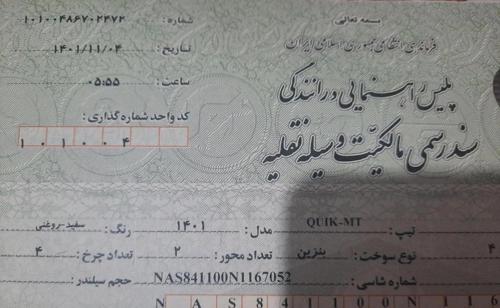 بسمه تعالی
فرماندهی انتظامی جمهوری اسلامی ایران
پلیس راهنمایی و رانندگی
سند رسمی مالکیت وسیله نقلیه
شماره: ۱۰۱۰۰۴۸۶۷۰۲۴۷۲
تاریخ: ۱۴۰۱/۱۱/۰۴
ساعت: ۰۵:۵۵
کد واحد شماره گذاری:
۱۰۱۰۰۴
تیپ: QUIK-MT مدل: ۱۴۰۱ رنگ: سفید-روغنی
۴ نوع سوخت: بنزین تعداد محور: ۲ تعداد چرخ: ۴
شماره شاسی: NAS841100N1167052 حجم سیلندر:
N A S 8 4 1 1 0 0 N 1 1 6